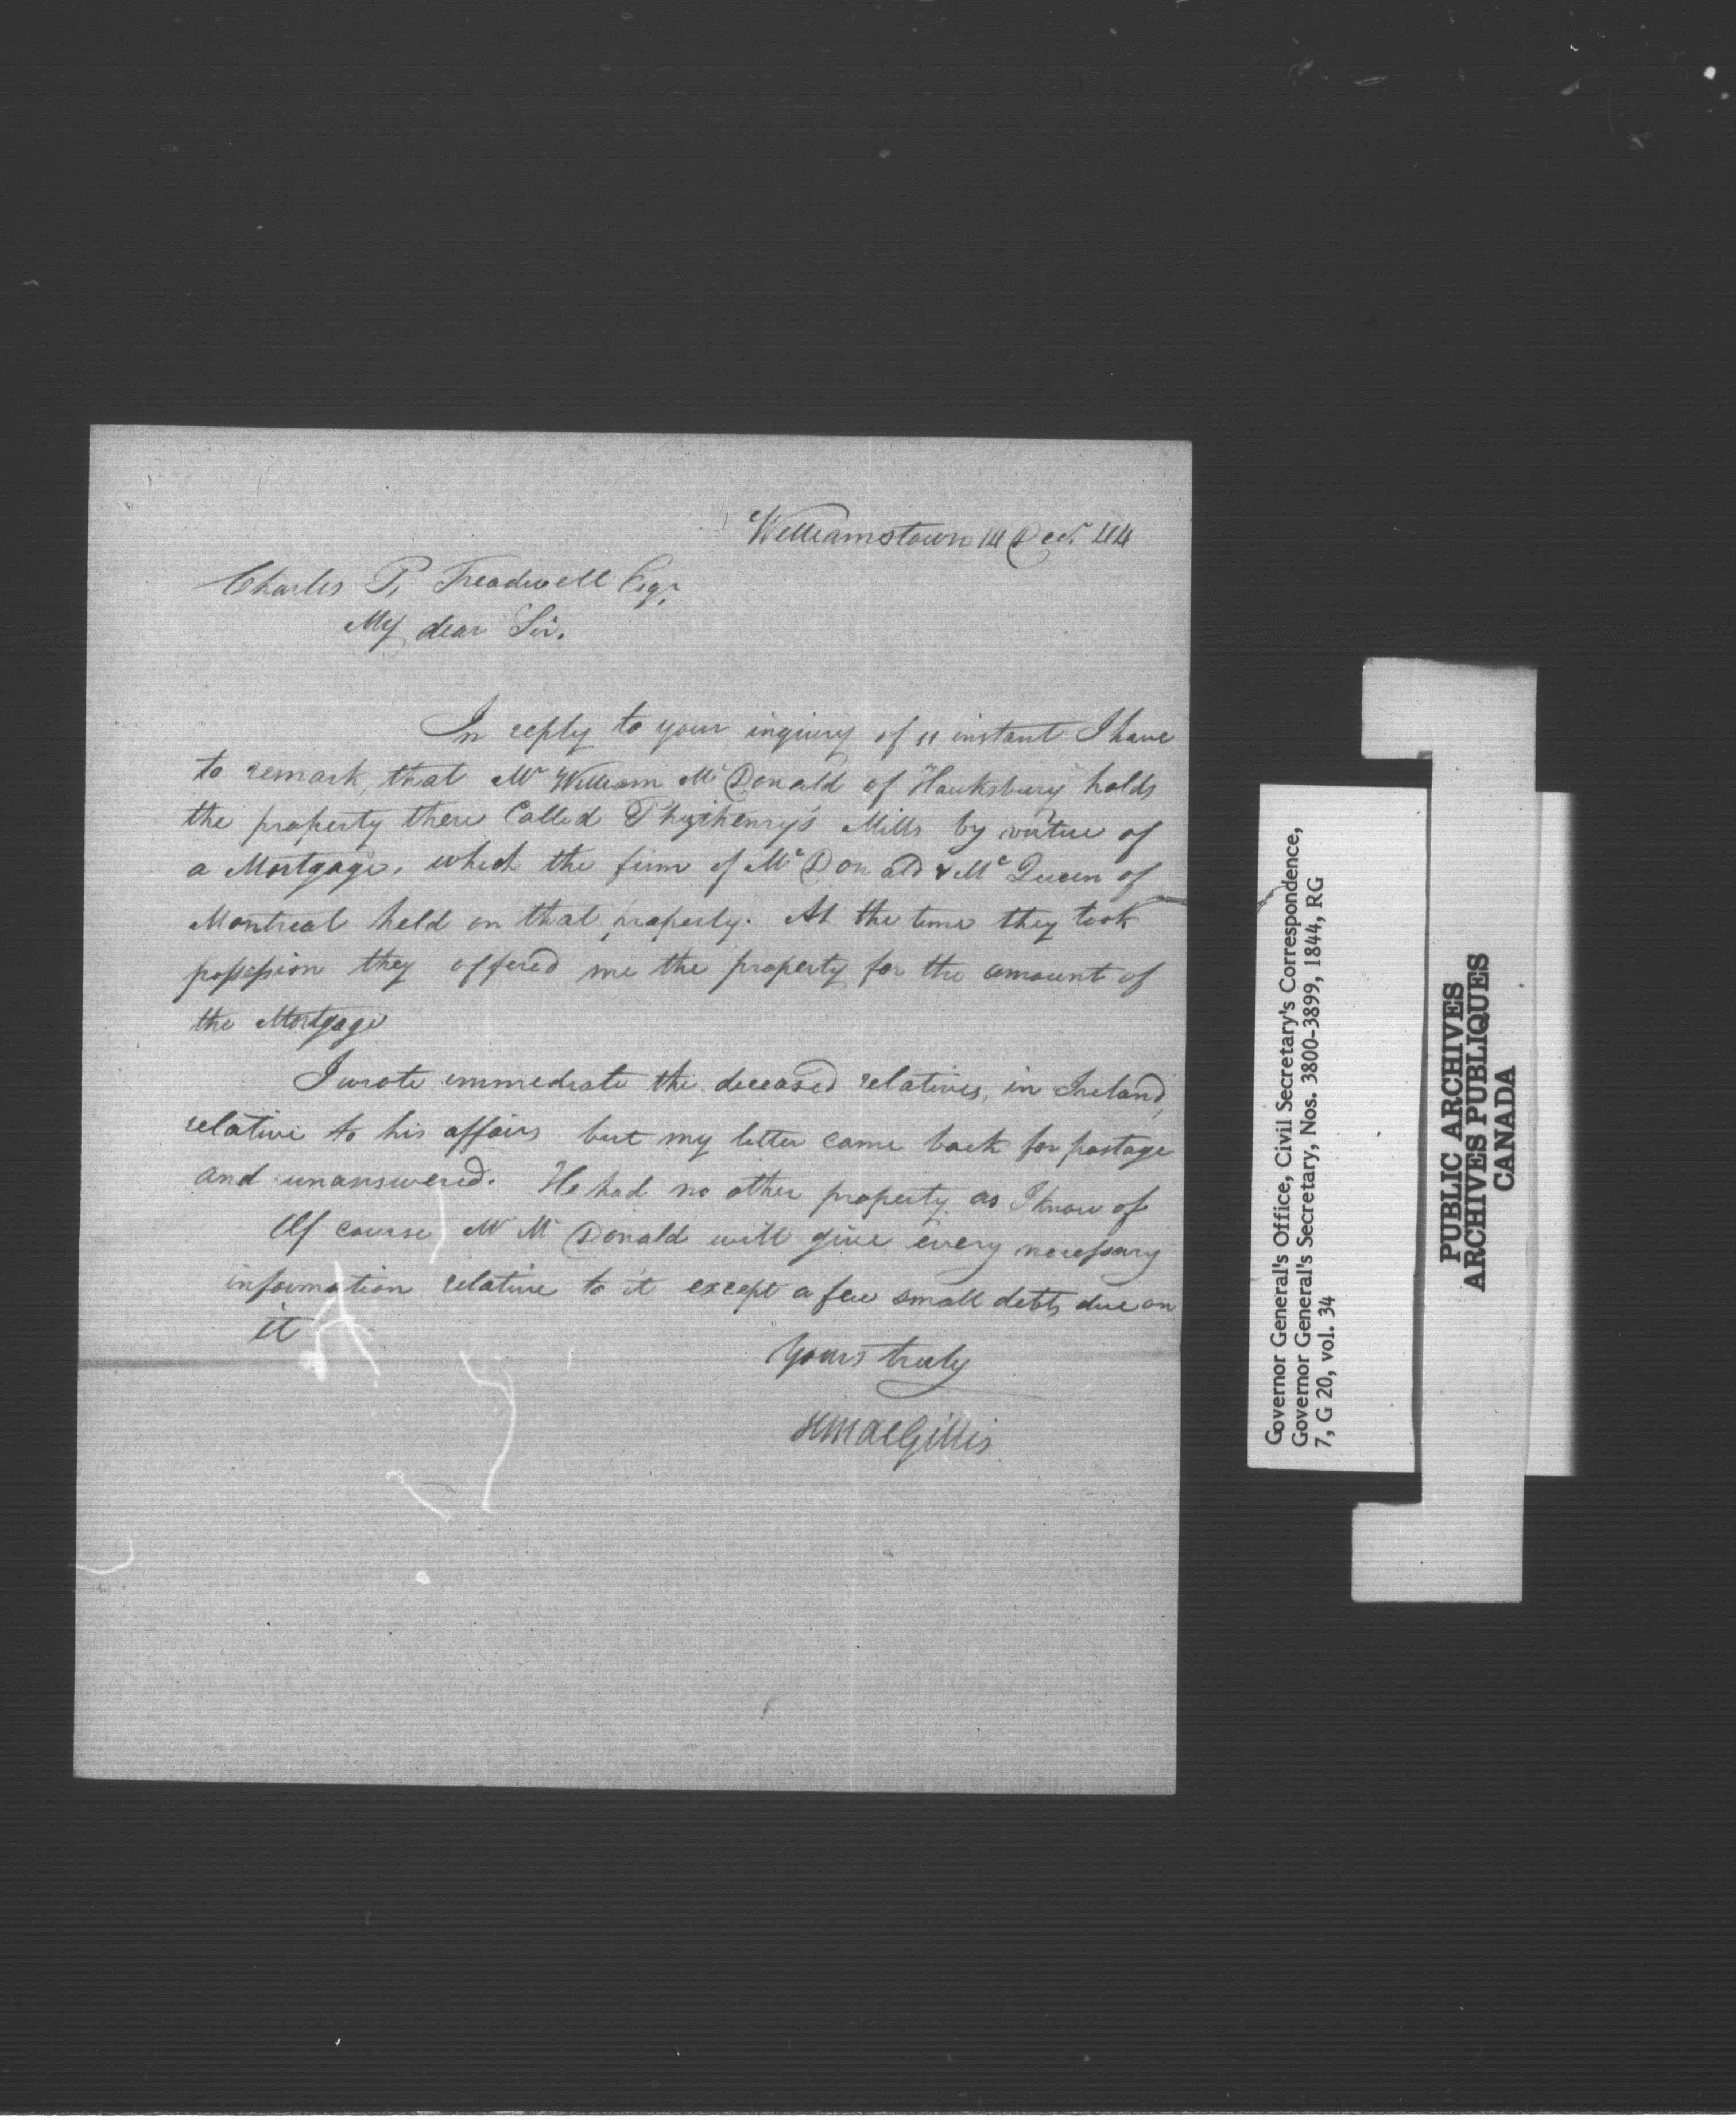 Williamstown 14 Decr. 44
Charles P. Treadwell Esqr.
My dear Sir.
In reply to your inquiry of 11 instant I have
to remark, that Mr William Mc Donald of Hauksbury holds
the property there Called Mills by virtue of
a Mortgage, which the firm of Mc Donald & Mc Queen of
Montreal held on that property. At the time they took
possession they offered me the property for the amount of
the Mortgage
I wrote immediate the deceased relatives, in Ireland,
relative to his affairs but my letter came back for postage
and unanswered. He had no other property as I know of
Of course Mr Mc Donald will give every necessary
information relative to it except a few small debts due on
it
Yours truly
MacGillis
Governor General's Office, Civil Secretary's Correspondence,
Governor General's Secretary, Nos. 3800-3899, 1844, RG
7, G 20, vol. 34
PUBLIC ARCHIVES
ARCHIVES PUBLIQUES
CANADA